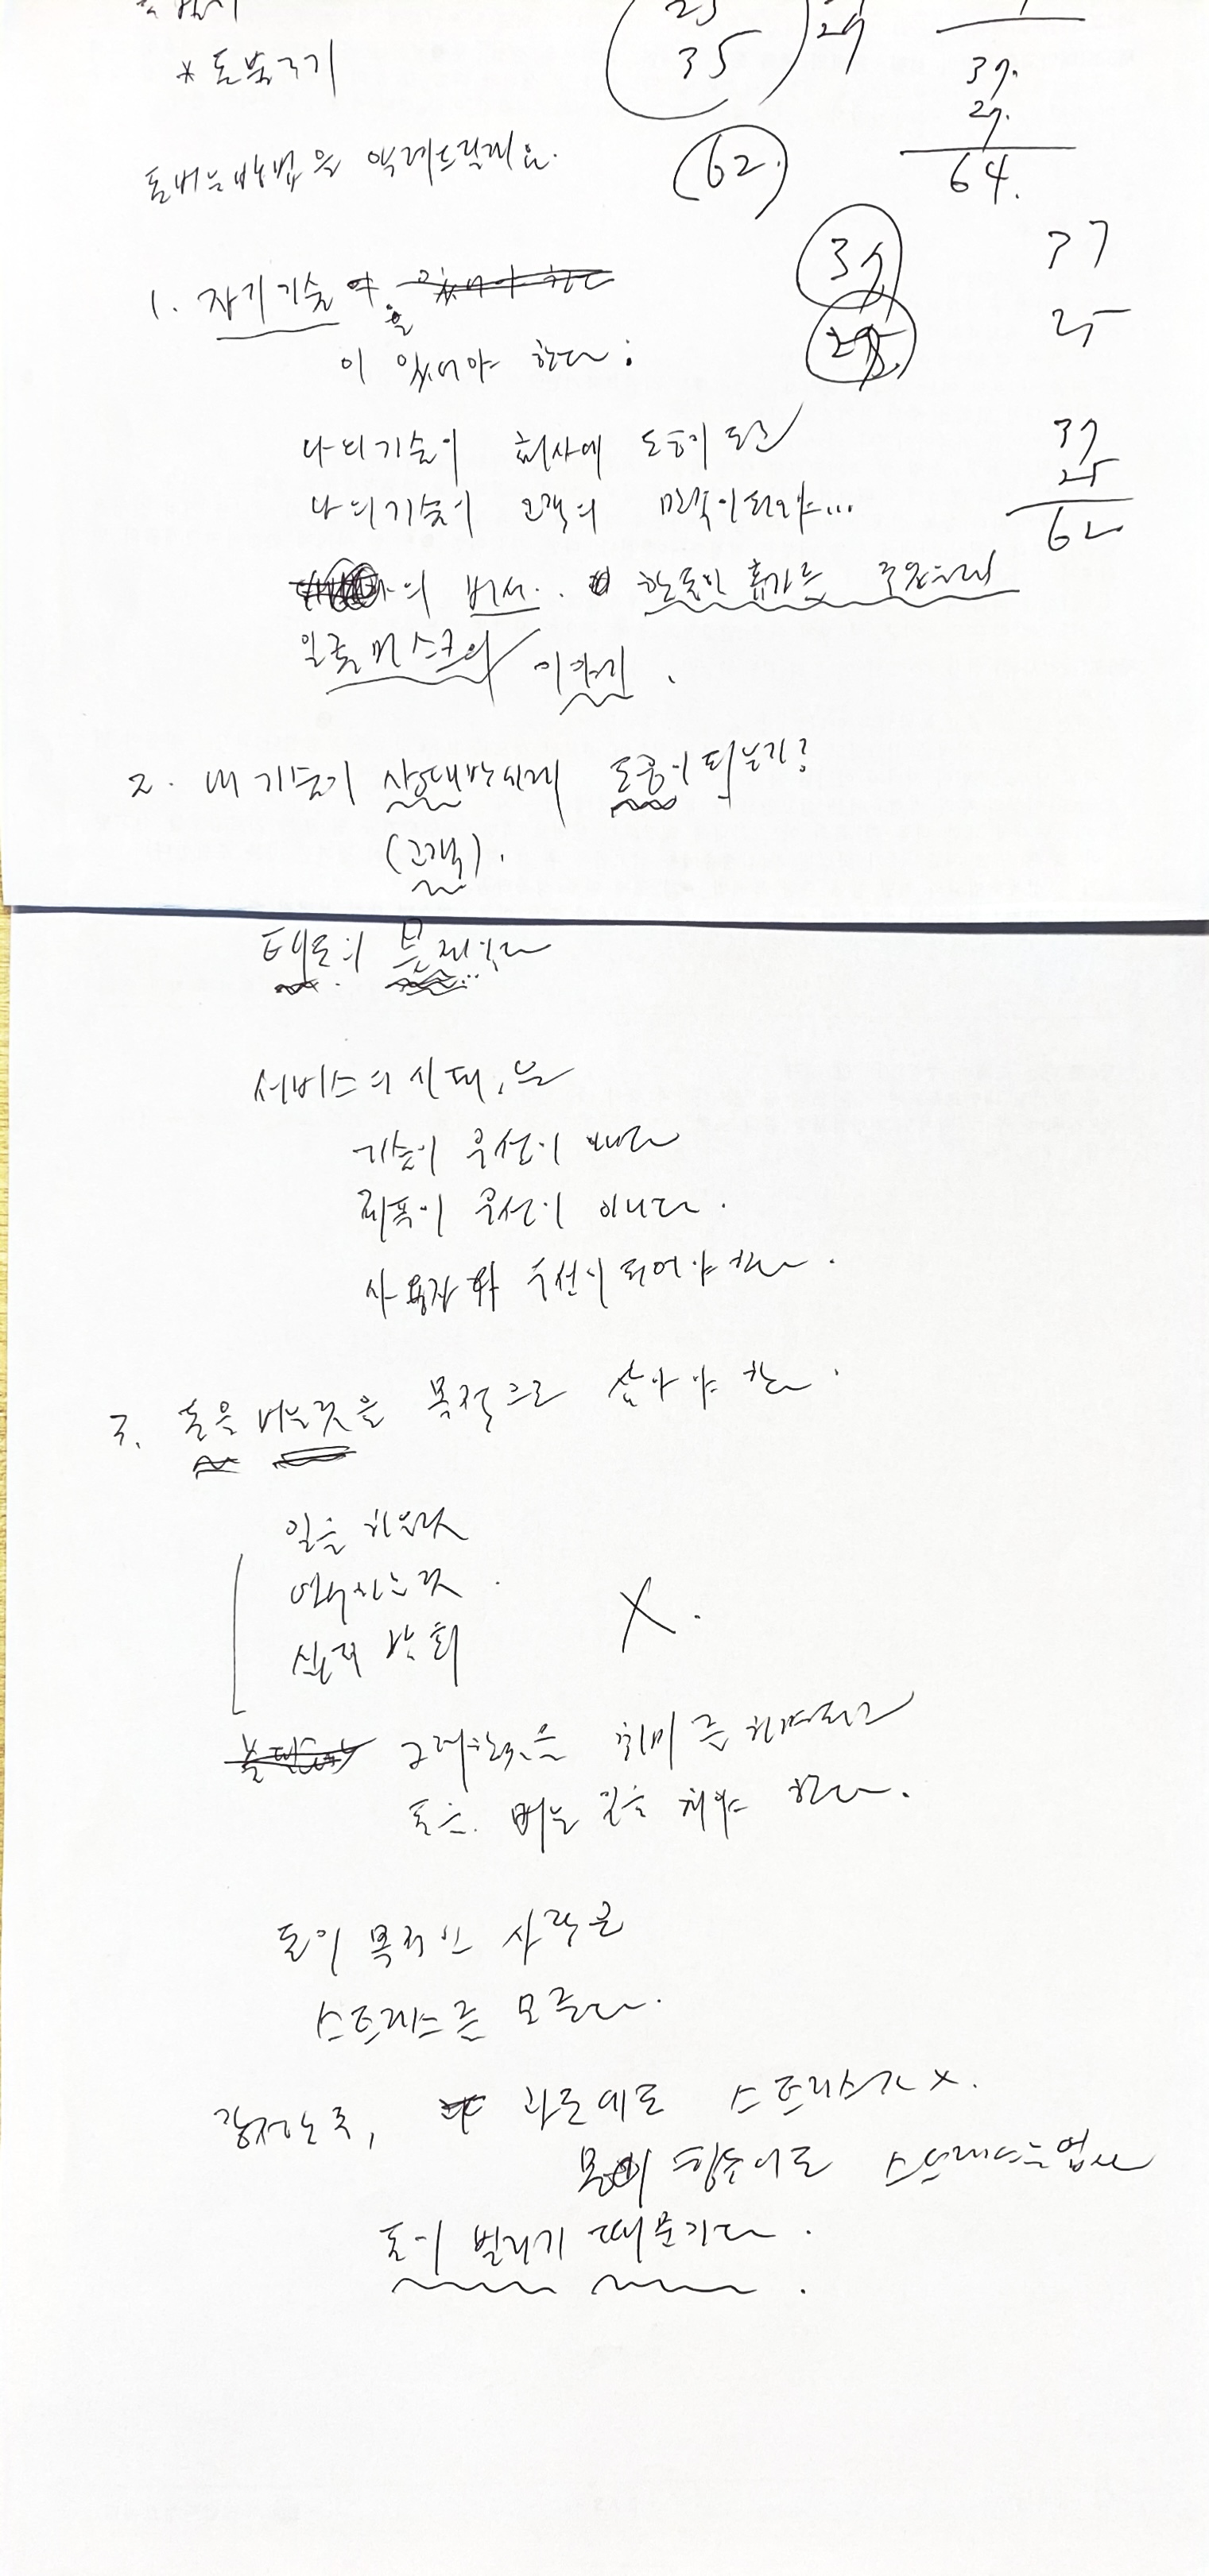 * 돈 불리기
25
35
29
39.
29.
64.
돈버는방법을 알려드릴게요.
(62.)
37
25
1. 자기기술
이 있어야 한다:
나의기술이 회사에 도움이 되고
나의기술이 고객의 만족이되야...
37
25
62
의 비서.. 한달간 휴가를 주었는데
일론머스크의 이야기.
2. 내 기술이 상대방에게 도움이 되는가?
(고객).
태도의 문제있다
서비스의 시대,는
기술이 우선이 아니다
제품이 우선이 아니다.
사용자가 우선이 되어야 한다.
3. 돈을 버는것을 목적으로 삼아야 한다.
일을 하는것
연구하는것.
X.
그러한것은 취미로 하면되고
돈은. 버는 일을 해야 한다.
돈이 목적인 사람은
스트레스를 모른다.
강제노동, 과로에도 스트레스가 x.
몸이 힘들어도 스트레스는 없다
돈이 벌리기 때문이다.